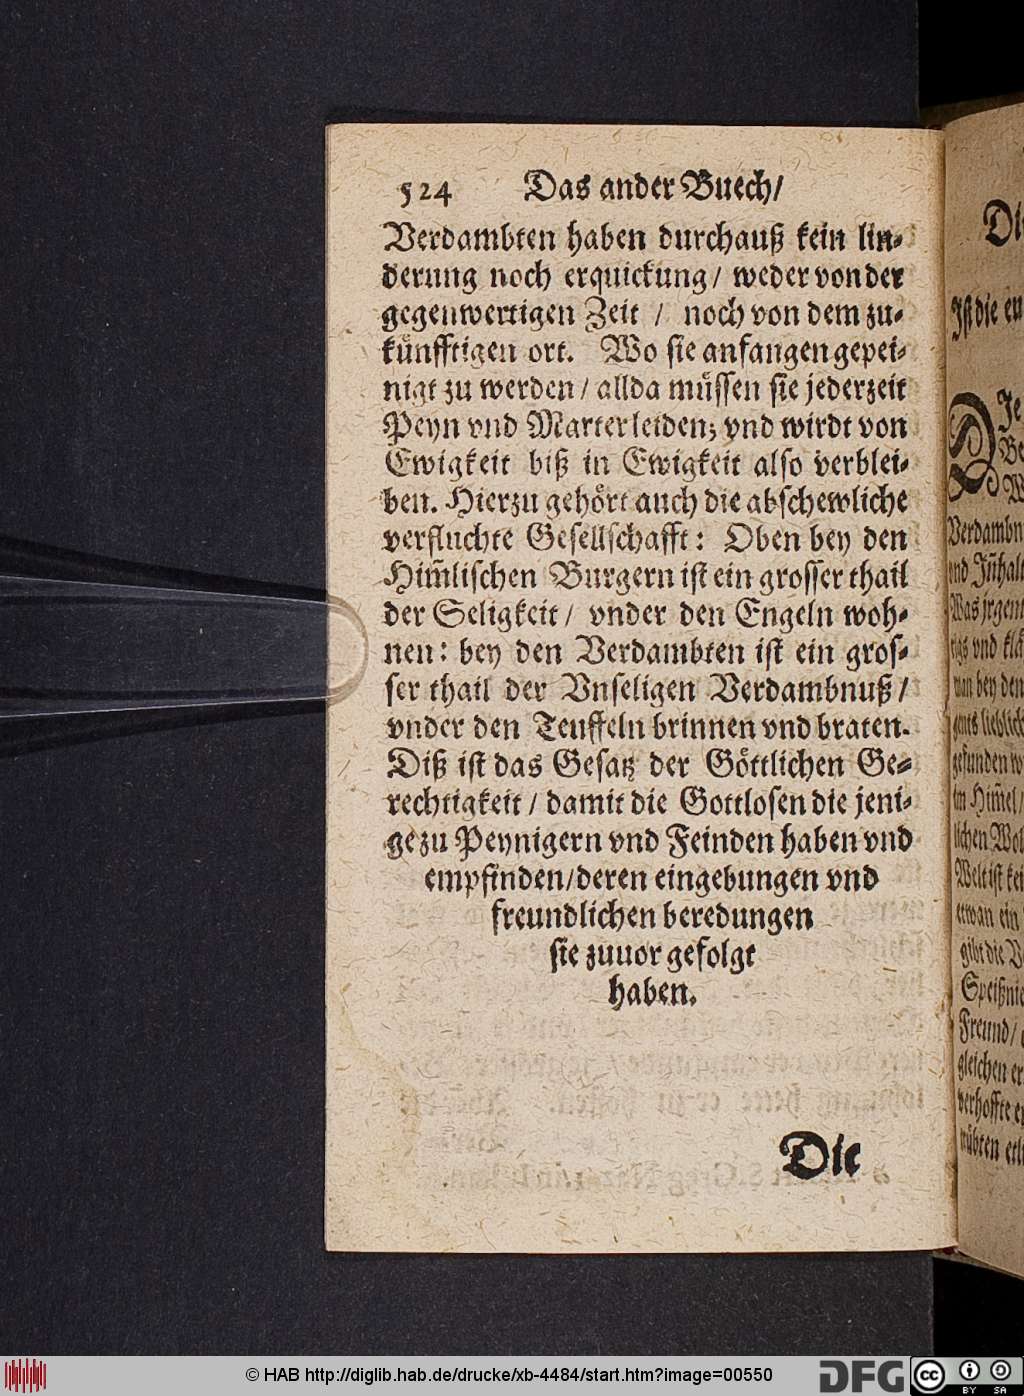 524 Das ander Buech/
Verdambten haben durchauß kein lin-
derung noch erquickung/ weder von der
gegenwertigen Zeit / noch von dem zu-
künfftigen ort. Wo sie anfangen gepei-
nigt zu werden/ allda müssen sie jederzeit
Peyn vnd Marter leiden; vnd wirdt von
Ewigkeit biß in Ewigkeit also verblei-
ben. Hierzu gehört auch die abschewliche
verfluchte Gesellschafft: Oben bey den
Him̃lischen Burgern ist ein grosser thail
der Seligkeit/ vnder den Engeln woh-
nen: bey den Verdambten ist ein gros-
ser thail der Vnseligen Verdambnuß/
vnder den Teuffeln brinnen vnd braten.
Diß ist das Gesatz der Göttlichen Ge-
rechtigkeit/ damit die Gottlosen die jeni-
ge zu Peynigern vnd Feinden haben vnd
empfinden/deren eingebungen vnd
freundlichen beredungen
sie zuuor gefolgt
haben.
Die
Ist die
Verdambn
vnd Jñhal
im Him̃el/
Welt ist kei
etwan ein
gibt die
Freund/
gleichen er
© HAB http://diglib.hab.de/drucke/xb-4484/start.htm?image=00550
DFG
cc BY SA